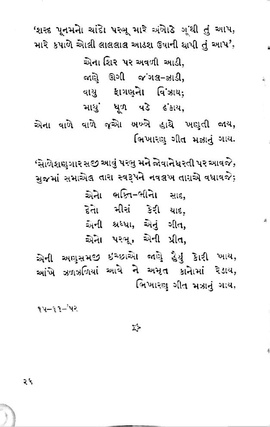 'શરદ પૂનમનો ચાંદો પરભુ મારે અંબોડે ગૂંથી તું આપ,
મારે કપાળે ઓલી લાલલાલ આડશ ઉષાની થાપી તું આપ',
એના શિર પર અવળી આડી,
જાણે ઊગી જંગલ-ઝાડી,
વાયુ ફાગણનો વિંઝાય;
માથું ધૂળ વડે ઢંકાય,
એના વાળે વાળે જૂઓ બબ્બે હાથે ખણતી જાય,
ભિખારણ ગીત મઝાનું ગાય.
'સોળેશણગારસજી આવું પરભુ મને જોવાનેધરતી પર આવજે;
મુજમાં સમાએલ તારા સ્વરૂપને નવલખ તારાએ વધાવજે';
એનો ભક્તિ-ભીનો સાદ,
દેતો મીરાં કેરી યાદ,
એની શ્રધ્ધા, એનું ગીત,
એનો પરભૂ, એની પ્રીત,
એની અણસમજી ઇચ્છાઓ જાણે હૈયું કોરી ખાય,
આંખે ઝળઝળિયાં આવે ને અમૃત કાનોમાં રેડાય,
ભિખારણ ગીત મઝાનું ગાય.
૨૬